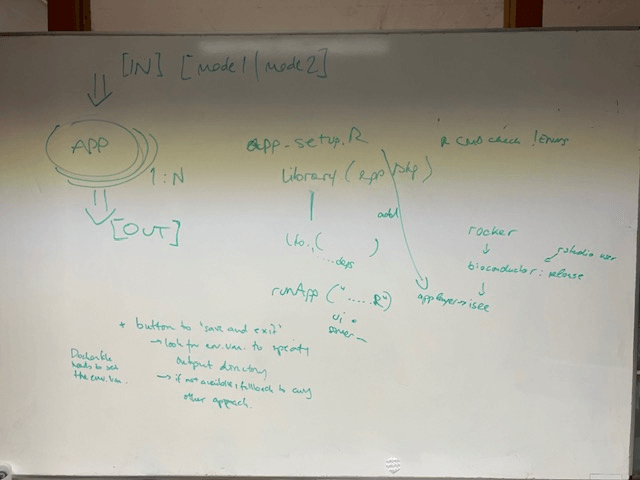 [IN] [mode1 | mode2]
APP
1:N
[OUT]
app_setup.R
library(app
add
...deps
runApp(".....R")
ui
server
R CMD check !Errors
rocker
bioconductor: release
rstudio
app layer → isee
* button to 'save and exit'
→ look for env.var. to specify
output directory
→ if not available, fallback to any
other approach.
Dockerfile
needs to set
the env.var.